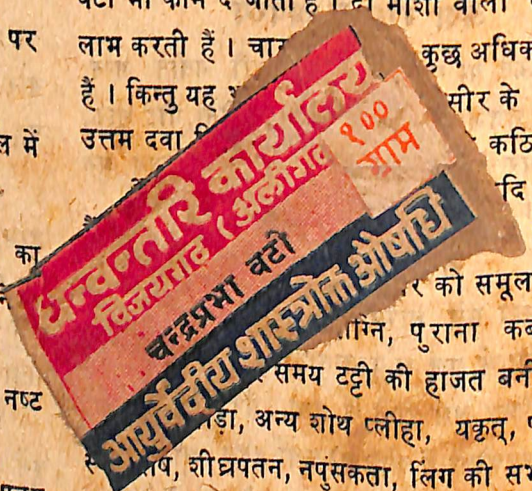 वटी भी काम दे जाती है। दो माशा वाला
पर लाभ करती हैं। चार कुछ अधिक
हैं। किन्तु यह सीर के
में उत्तम दवा कठि
दि
का
धन्वन्तरि कार्यालय
विजयगढ़ (अलीगढ़
१०० ग्राम
चन्द्रप्रभा वटी
आयुर्वेदीय शास्त्रोक्त औषधि
को समूल
ग्नि, पुराना
समय टट्टी की हाजत बनी
नष्ट डा, अन्य शोथ प्लीहा, यकृत्,
ष, शीघ्रपतन, नपुंसकता, लिंग की